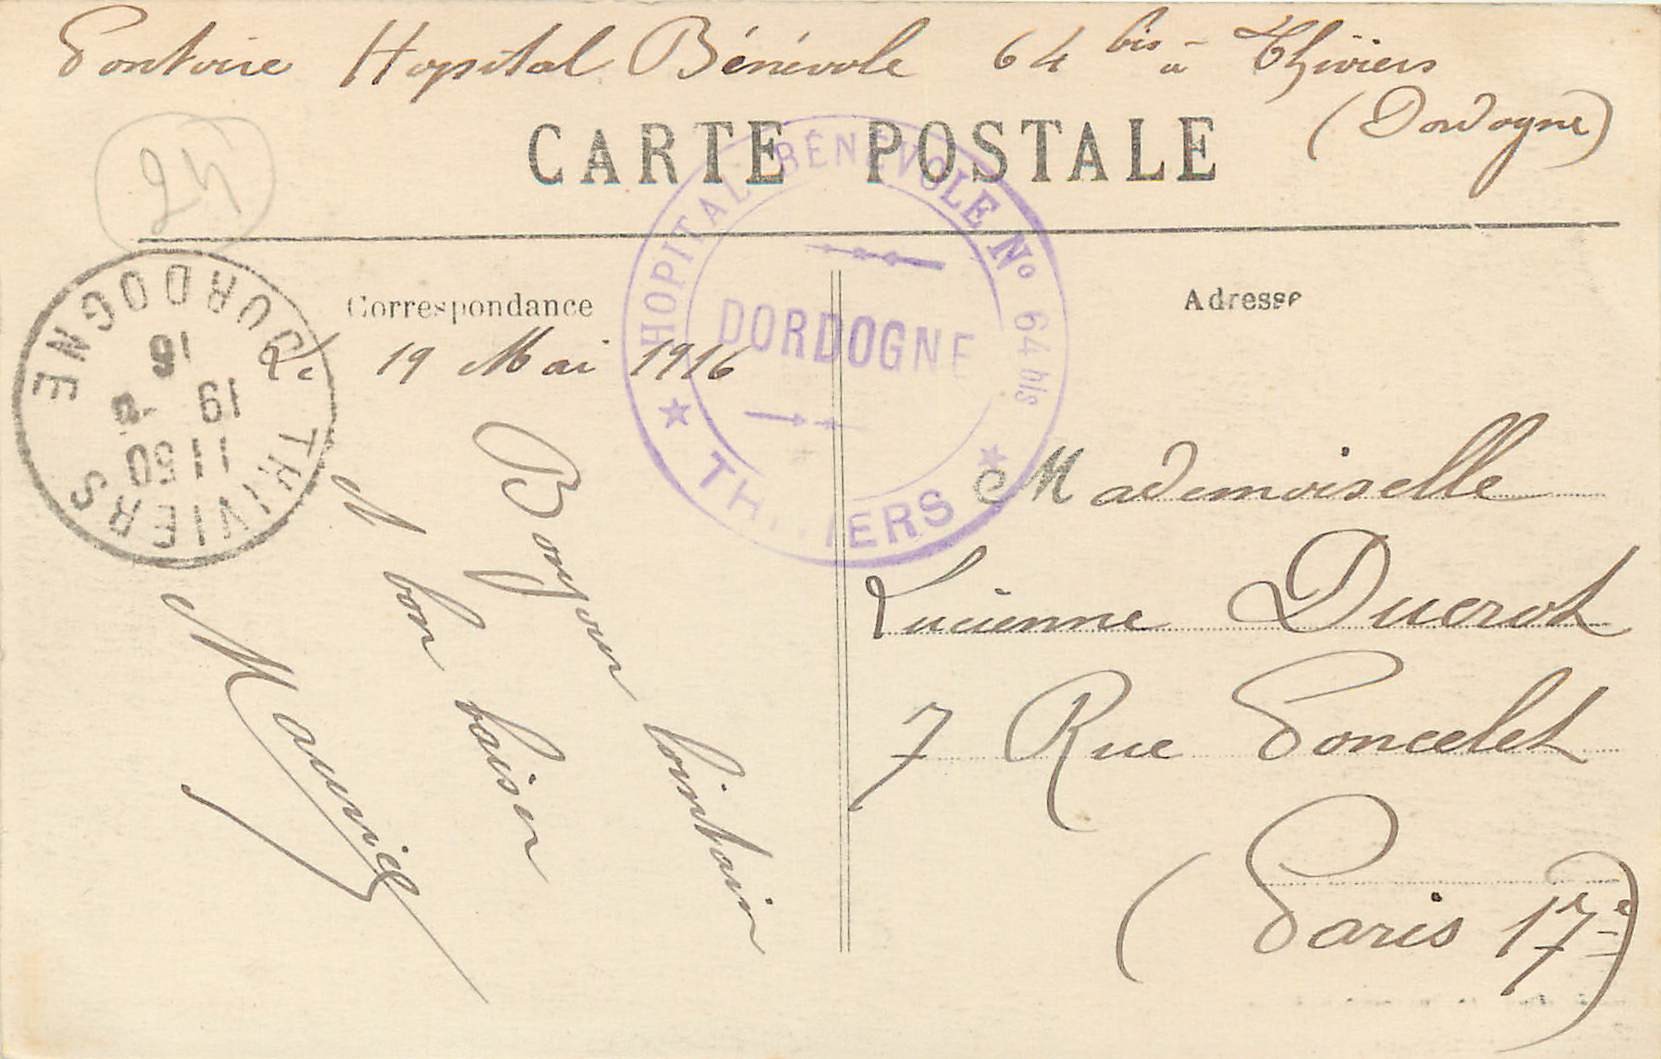 Pontoire Hopital Bénévole 64 bis à Thiviers
(Dordogne)
CARTE POSTALE
24
HOPITAL BÉNÉVOLE N° 64 bis
DORDOGNE
★ THIVIERS ★
THIVIERS DORDOGNE
11 50
19 -5
16
Correspondance
Le 19 Mai 1916
Bonjour lointain
et bon baiser
Maurice
Adresse
Mademoiselle
Lucienne Ducrot
7 Rue Poncelet
(Paris 17e)